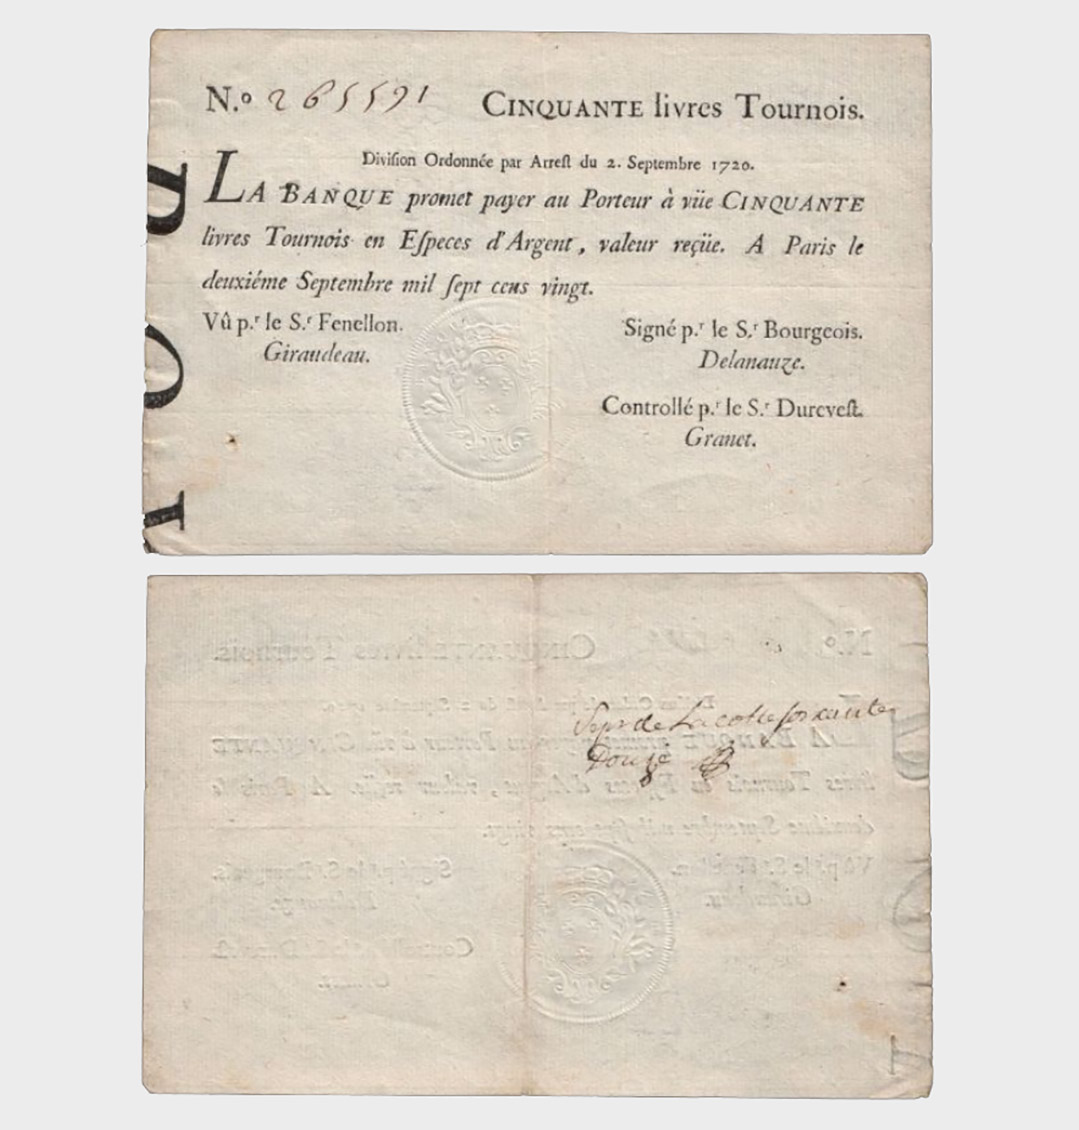 N.º 265591 CINQUANTE livres Tournois.
Diviſion Ordonnée par Arreſt du 2. Septembre 1720.
LA BANQUE promet payer au Porteur à vüe CINQUANTE
livres Tournois en Eſpeces d'Argent, valeur reçüe. A Paris le
deuxiéme Septembre mil ſept cens vingt.
Vû p.r le S.r Fenellon.
Giraudeau.
Signé p.r le S.r Bourgeois.
Delanauze.
Controllé p.r le S.r Dureveſt.
Granet.